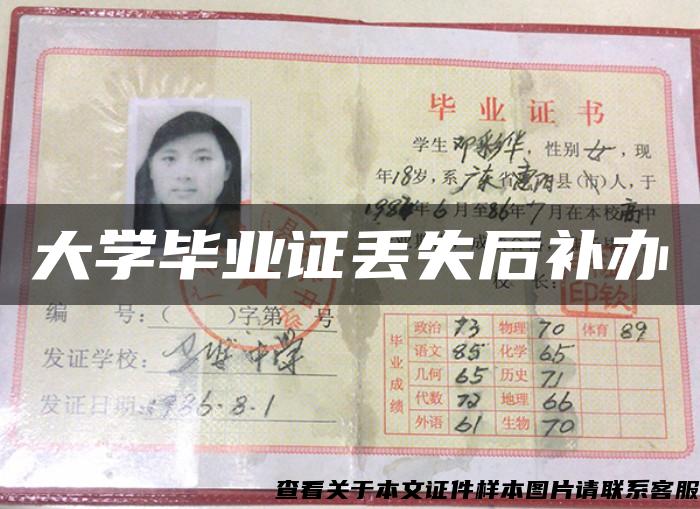 毕业证书
学生邓彩华，性别女，现
年18岁，系广东省惠阳县(市)人，于
6月至86年7月在本校高中
大学毕业证丢失后补办
校长：
编 号：（ ）字第 号
发证学校： 中学
发证日期：1986.8.1
毕业成绩
政治 73 物理 70 体育 89
语文 85 化学 65
几何 65 历史 71
代数 72 地理 66
外语 61 生物 70
查看关于本文证件样本图片请联系客服